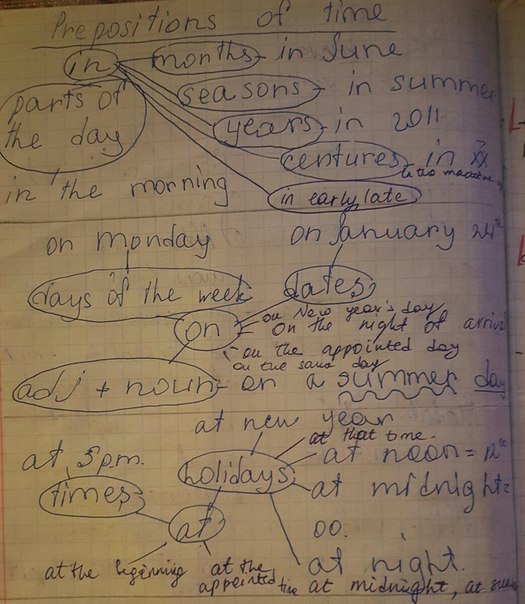 Prepositions of time
in months - in June
parts of the day
seasons - in summer
years - in 2011
centures - in XX
in the morning
in early, late
on monday
on January 24th
days of the week
dates
on
on New year's day
on the night of arrival
on the appointed day
on the same day
adj + noun - on a summer day
at new year
at that time.
at 5 p.m.
holidays
at noon = 12 00
times
at midnight =
00.
at
at night.
at the beginning
at the appointed time
at midnight, at